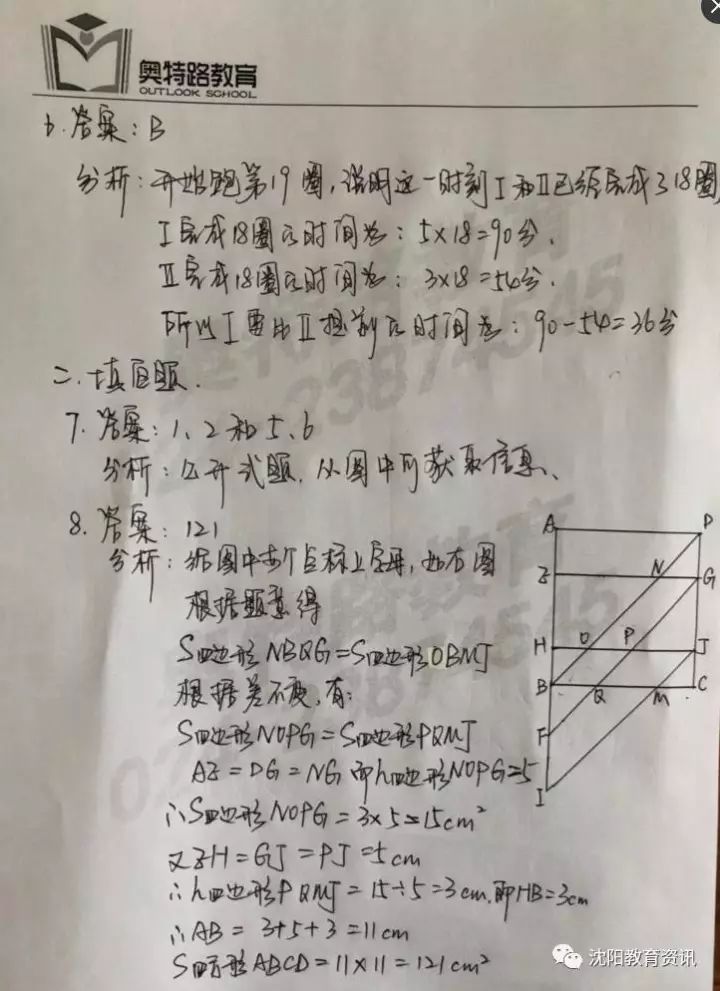 奥特路教育
OUTLOOK SCHOOL
6. 答案：B
分析：开始跑第19圈，说明这一时刻Ⅰ和Ⅱ已经完成了18圈
Ⅰ完成18圈的时间为：5×18=90分.
Ⅱ完成18圈的时间为：3×18=54分.
所以Ⅰ要比Ⅱ提前的时间为：90-54=36分
二. 填空题.
7. 答案：1、2和5、6
分析：公开式题，从图中可获取信息、
8. 答案：121
分析：给图中每个点标上字母，如右图
根据题意得
S四边形NBQG=S四边形OBMJ
根据差不变，有：
S四边形NOPG=S四边形PQMJ
AZ=DG=NG 即h四边形NOPG=5
∴S四边形NOPG=3×5=15cm²
又ZH=GJ=PJ=5cm
∴h四边形PQMJ=15÷5=3cm.即HB=3cm
∴AB=3+5+3=11cm
S四方形ABCD=11×11=121cm²
A D
Z N G
H O P J
B Q M C
F
I
沈阳教育资讯